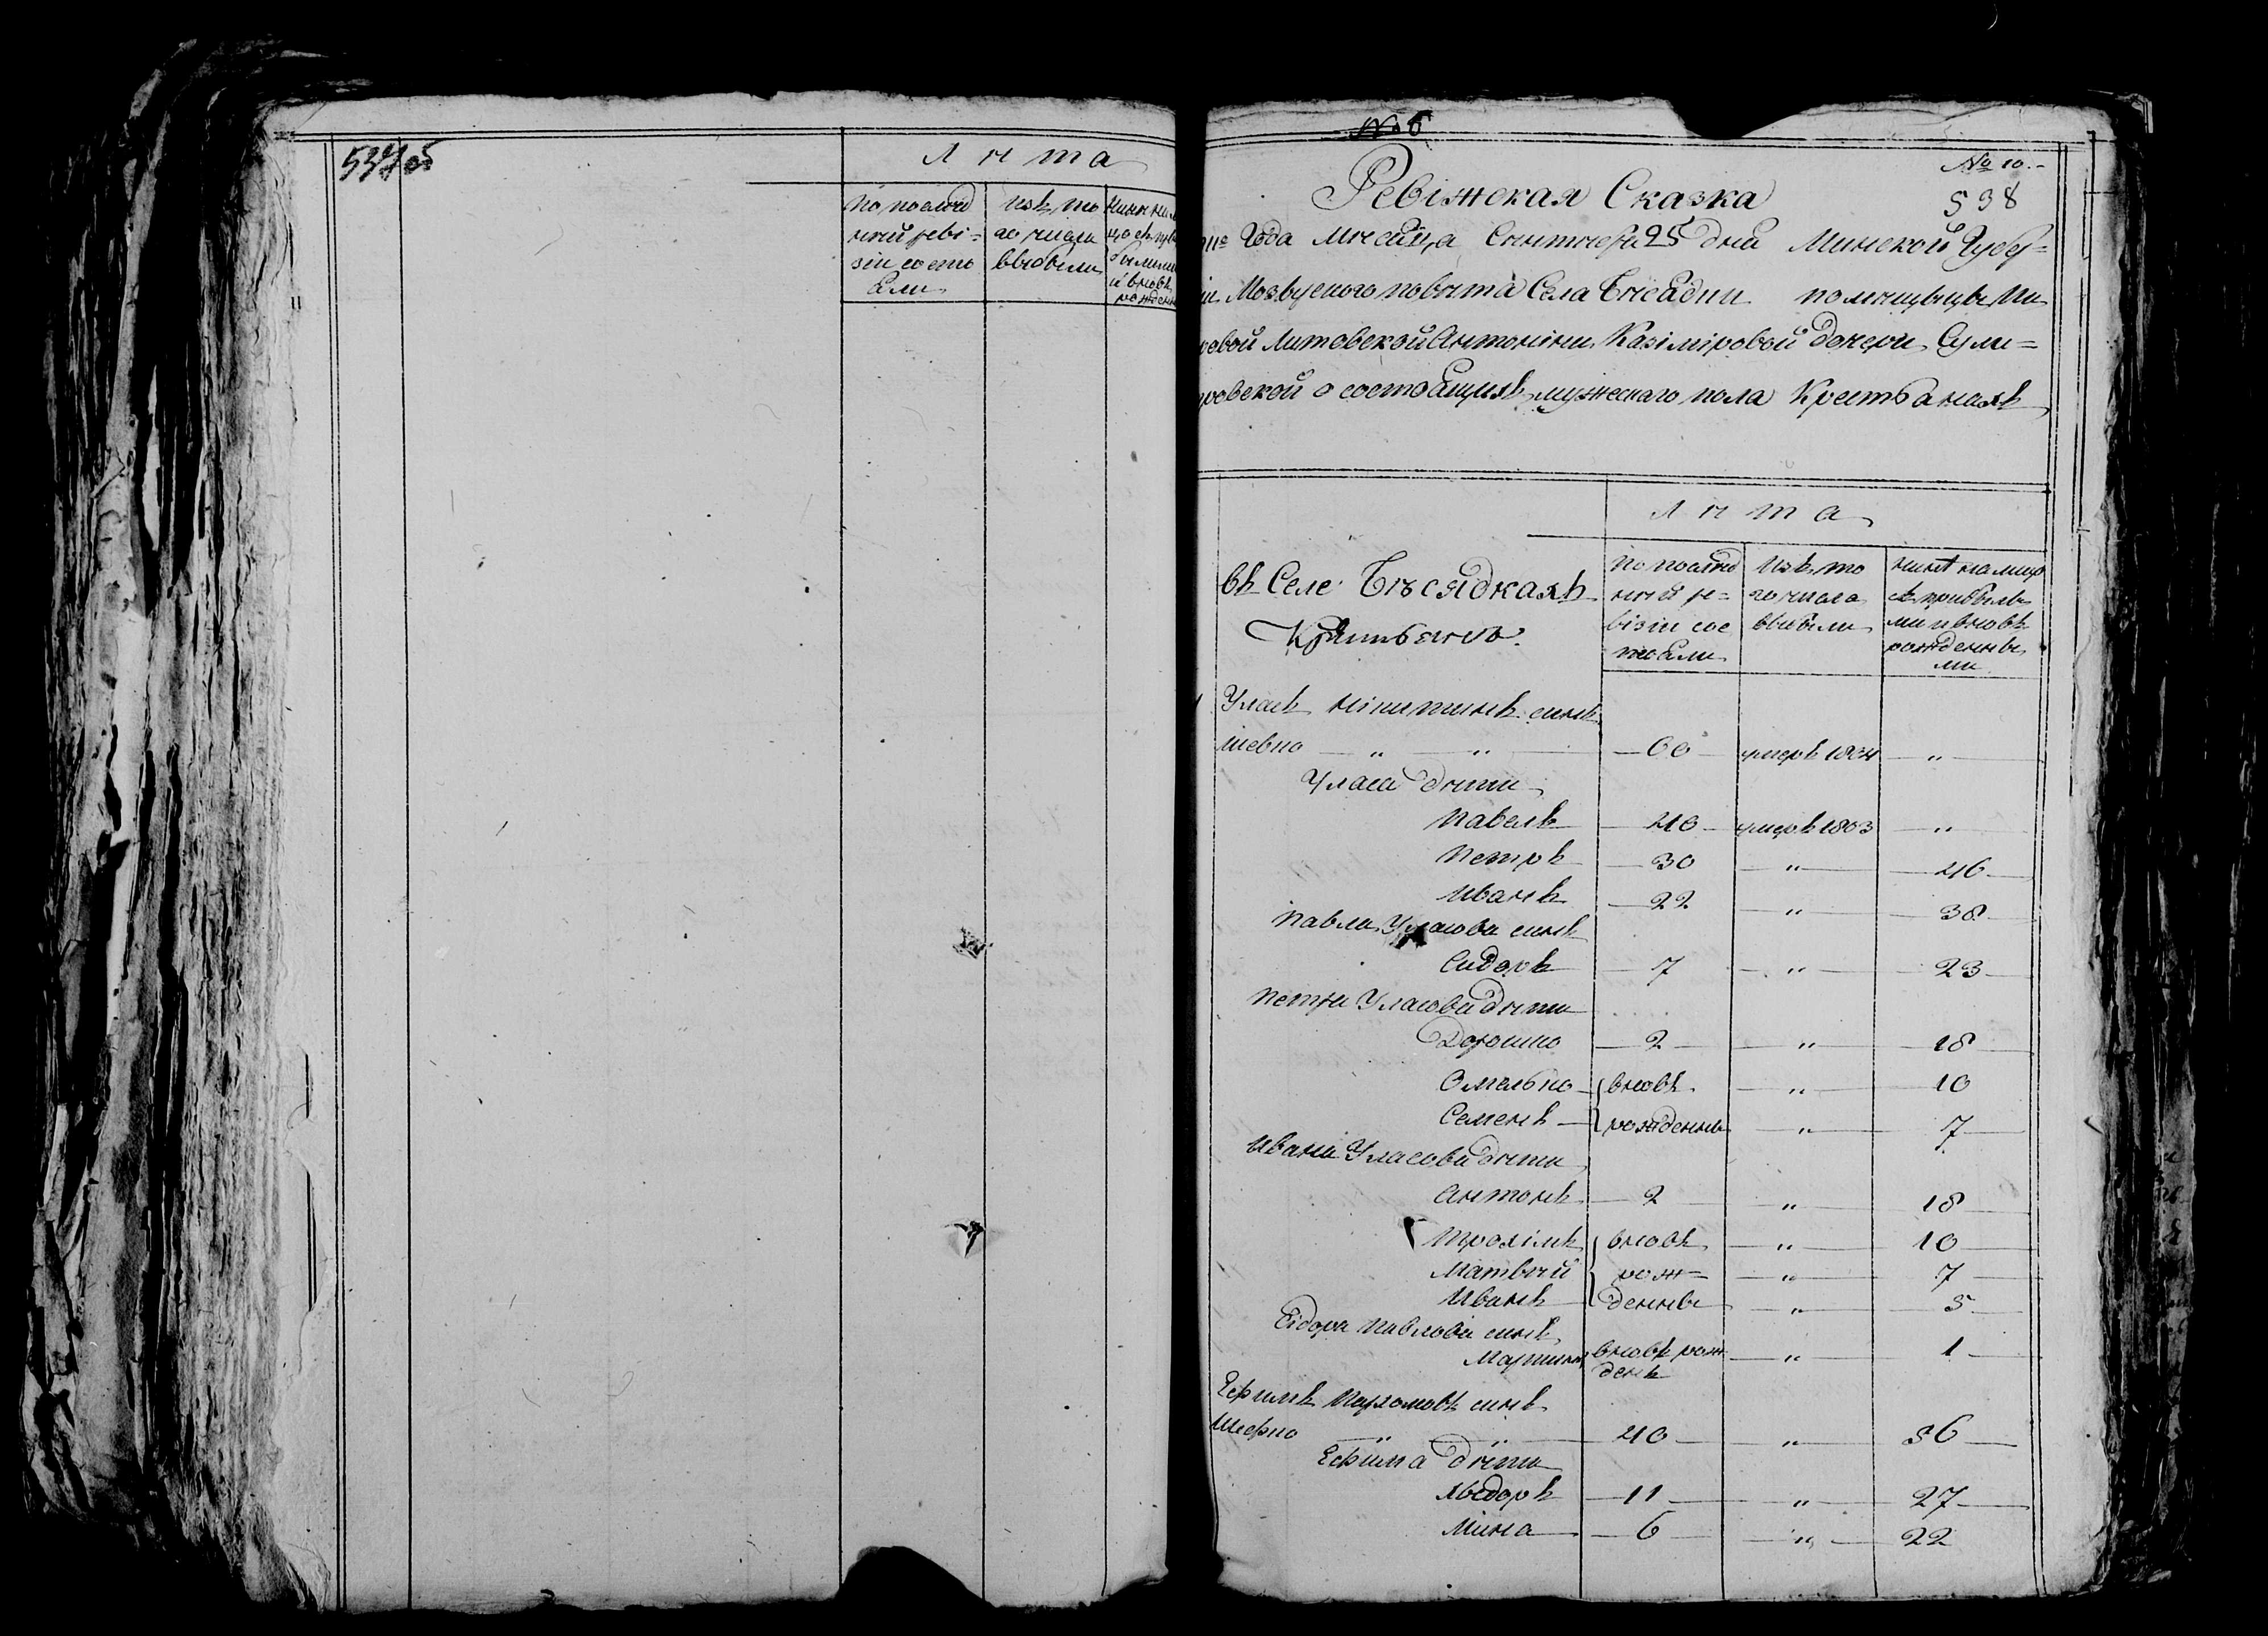 537об
Лѣта
по послѣд
ней реві=
зіи состо
яли
изъ то
го числа
выбыли
ныне на ли
цо съ при
былыми
и вновь
рожден
№ 6
№ 10.
538
Ревіжская Сказка
Года Месяца Сентября 25 дня Минской Губер=
Мозырского повѣта Села Бѣсядки помѣщицы
Литовской Антонины Казіміровой дочери Сули=
о состоящихъ мужескаго пола Крестьянахъ
Лѣта
въ Селе Бѣсядкахъ
Крестьянъ
по послѣд
ней ре=
візіи сос
тояли
изъ то
го числа
выбыли
ныне на лицо
съ прибылы
ми и вновь
рожденны
ми
Уласъ Нікитинъ сынъ
Шевко " " 60 умеръ 1804 "
Уласа дѣти
Павелъ 40 умеръ 1803 "
Петръ 30 " 46
Иванъ 22 " 38
Павла Уласова сынъ
Сидоръ 7 " 23
Петра Уласова дѣти
Дорошко 2 " 18
Омелько вновь " 10
Семенъ рожденны " 7
Ивана Уласова дѣти
Антонъ 2 " 18
Трохімъ вновь " 10
Матвѣй рож= " 7
Иванъ денны " 5
Сідора Павлова сынъ
Мартинъ вновь рож " 1
денъ
Ефимъ Пархомовъ сынъ
Шефко " " 40 " 56
Ефима дѣти
Хведоръ 11 " 27
Мина 6 " 22